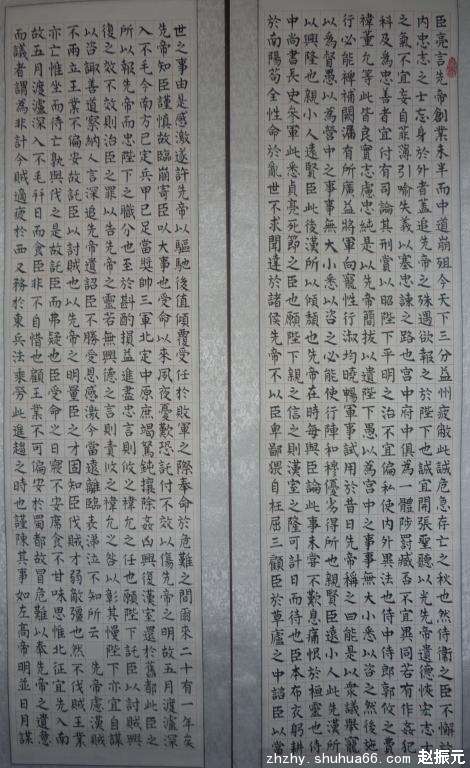 臣亮言先帝創業未半而中道崩殂今天下三分益州疲敝此誠危急存亡之秋也然侍衛之臣不懈於
內忠志之士忘身於外者蓋追先帝之殊遇欲報之於陛下也誠宜開張聖聽以光先帝遺德恢宏志士
之氣不宜妄自菲薄引喻失義以塞忠諫之路也宮中府中俱為一體陟罰臧否不宜異同若有作姦犯
科及為忠善者宜付有司論其刑賞以昭陛下平明之治不宜偏私使內外異法也侍中侍郎郭攸之費
禕董允等此皆良實志慮忠純是以先帝簡拔以遺陛下愚以為宮中之事事無大小悉以咨之然後施
行必能裨補闕漏有所廣益將軍向寵性行淑均曉暢軍事試用於昔日先帝稱之曰能是以衆議舉寵
以為督愚以為營中之事事無大小悉以咨之必能使行陣和穆優劣得所也親賢臣遠小人此先漢所
以興隆也親小人遠賢臣此後漢所以傾頹也先帝在時每與臣論此事未嘗不歎息痛恨於桓靈也侍
中尚書長史參軍此悉貞亮死節之臣也願陛下親之信之則漢室之隆可計日而待也臣本布衣躬耕
於南陽苟全性命於亂世不求聞達於諸侯先帝不以臣卑鄙猥自枉屈三顧臣於草廬之中諮臣以當
世之事由是感激遂許先帝以驅馳後值傾覆受任於敗軍之際奉命於危難之間爾來二十有一年矣
先帝知臣謹慎故臨崩寄臣以大事也受命以來夙夜憂歎恐託付不效以傷先帝之明故五月渡瀘深
入不毛今南方已定兵甲已足當獎帥三軍北定中原庶竭駑鈍攘除姦凶興復漢室還於舊都此臣之
所以報先帝而忠陛下之職分也至於斟酌損益進盡忠言則攸之禕允之任也願陛下託臣以討賊興
復之效不效則治臣之罪以告先帝之靈若無興德之言則責攸之禕允之咎以彰其慢陛下亦宜自謀
以咨諏善道察納言深追先帝遺詔臣不勝受恩感激今當遠離臨表涕泣不知所云 先帝慮漢賊
不兩立王業不偏安故託臣以討賊也以先帝之明量臣之才固知臣伐賊才弱敵彊也然不伐賊王業
亦亡惟坐而待亡孰與伐之是故託臣而弗疑也臣受命之日寢不安席食不甘味思惟北征宜先入南
故五月渡瀘深入不毛并日而食臣非不自惜也顧王業不可偏安於蜀都故冒危難以奉先帝之遺意
而議者謂為非計今賊適疲於西又務於東兵法乘勞此進趨之時也謹陳其事如左高帝明並日月謀
zhzhy.shuhua66.com 赵振元